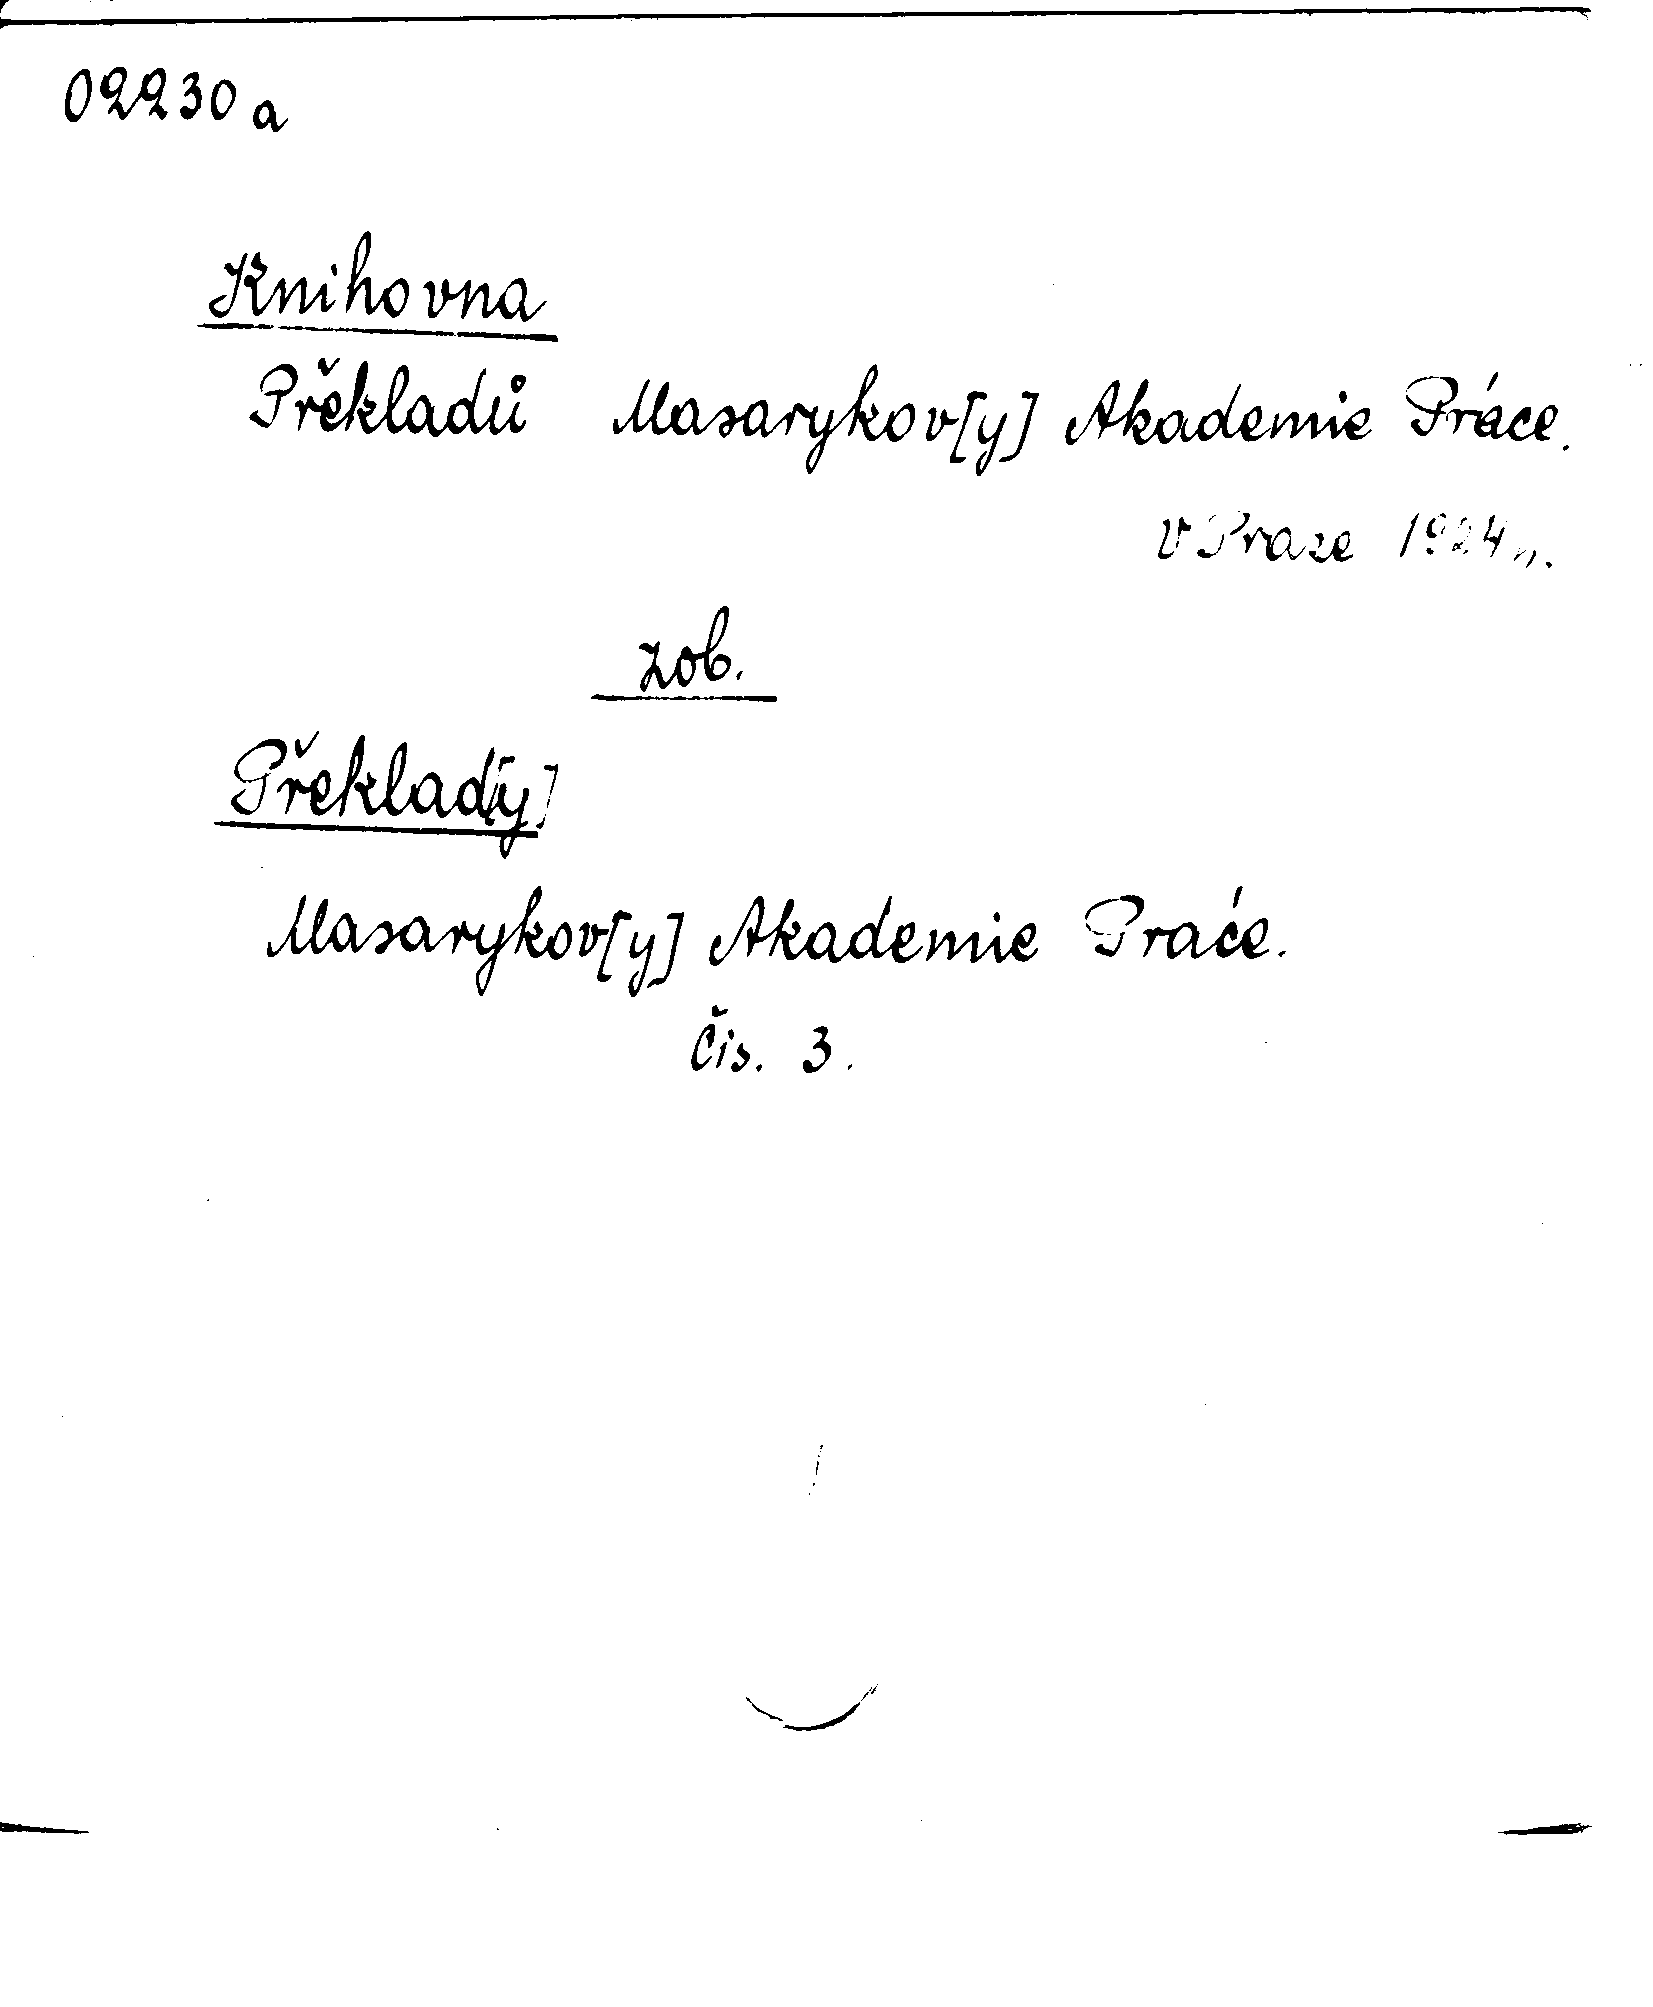 02230 a
Knihovna
Překladů Masarykov[y] Akademie Práce.
v Praze 1924 „.
zob.
Překlad[y]
Masarykov[y] Akademie Praće.
Čis. 3.